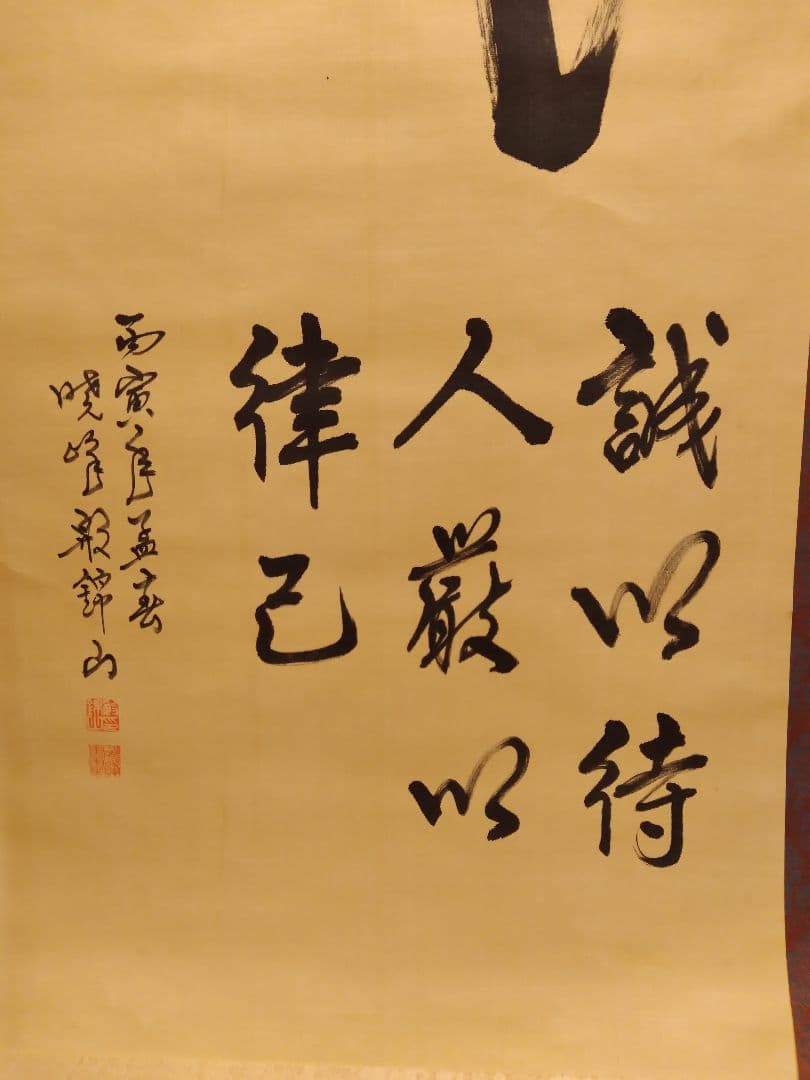 誠以待
人嚴以
律己
丙寅年孟春
曉峰殷錦山